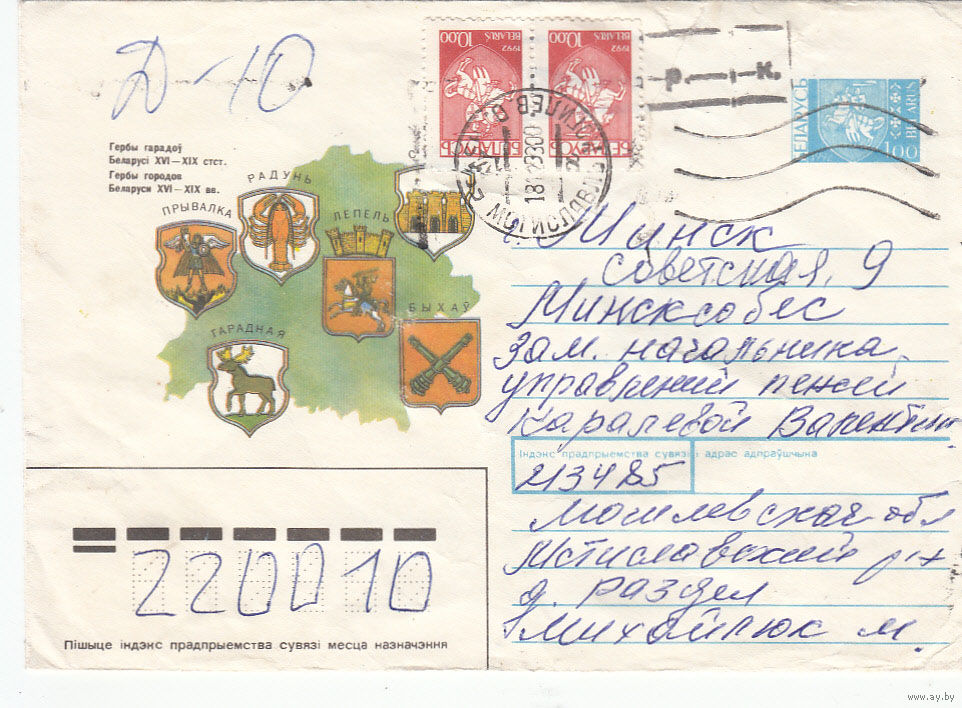 Д-10
BELARUS 1992
10.00
БЕЛАРУСЬ
BELARUS 1992
10.00
БЕЛАРУСЬ
Р.
К.
БЕЛАРУСЬ
BELARUS
1.00
МСТИСЛАВЛЬ
Гербы гарадоў
Беларусі XVI—XIX стст.
Гербы городов
Беларуси XVI—XIX вв.
РАДУНЬ
ПРЫВАЛКА
ЛЕПЕЛЬ
БЫХАЎ
ГАРАДНАЯ
г. Минск
Советская, 9
Минсксобес
Зам. начальника
управлений пенсий
Каралевой Валентин
Індэкс прадпрыемства сувязі і адрас адпраўшчына
213485
Могилевская обл
Мстиславский р-н
д. Раздел
Михайлюк М.
220010
Пішыце індэкс прадпрыемства сувязі месца назначэння
www.ay.by